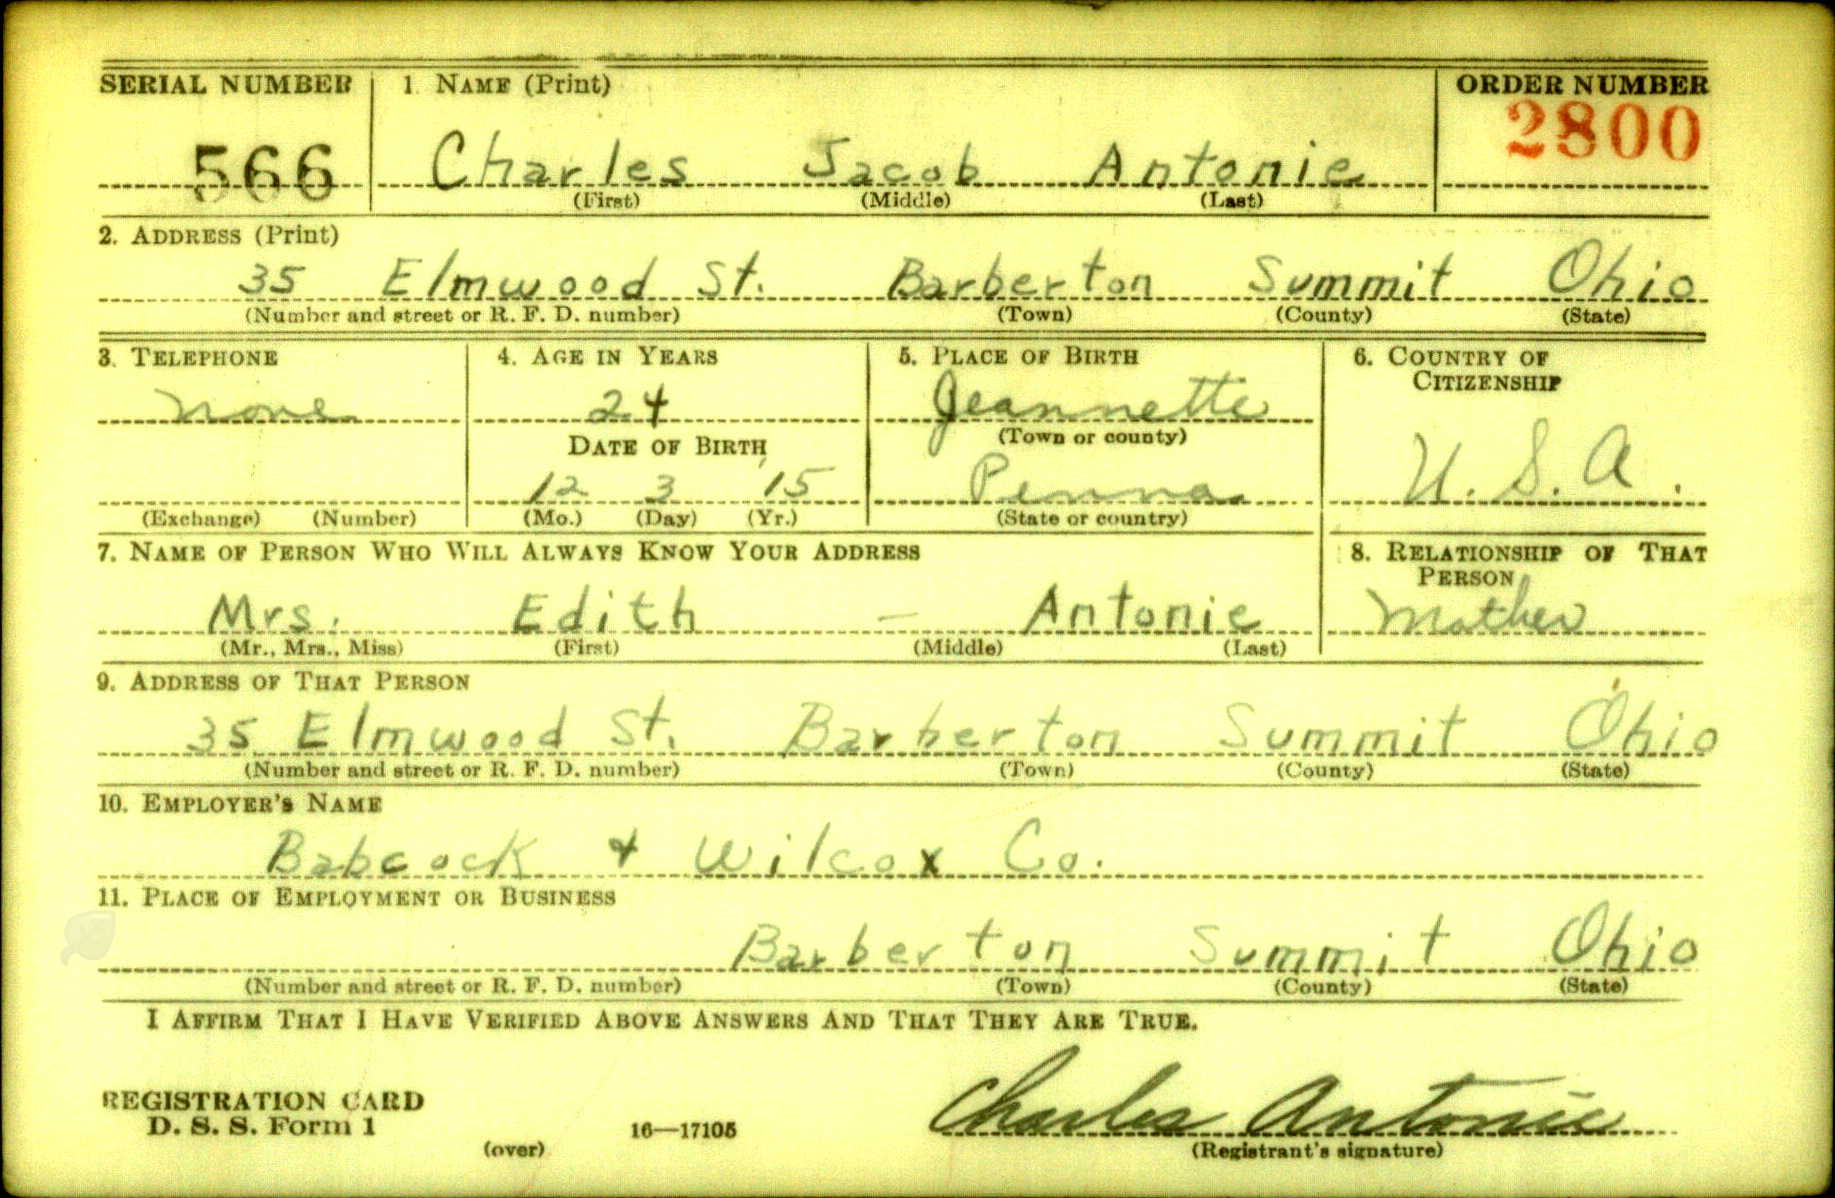 SERIAL NUMBER 1. NAME (Print) ORDER NUMBER
566 Charles Jacob Antonie 2800
(First) (Middle) (Last)
2. ADDRESS (Print)
35 Elmwood St. Barberton Summit Ohio
(Number and street or R. F. D. number) (Town) (County) (State)
3. TELEPHONE 4. AGE IN YEARS 5. PLACE OF BIRTH 6. COUNTRY OF CITIZENSHIP
none 24 Jeannette
DATE OF BIRTH (Town or county)
12 3 '15 Penna. U. S. A.
(Exchange) (Number) (Mo.) (Day) (Yr.) (State or country)
7. NAME OF PERSON WHO WILL ALWAYS KNOW YOUR ADDRESS 8. RELATIONSHIP OF THAT PERSON
Mrs. Edith — Antonie Mother
(Mr., Mrs., Miss) (First) (Middle) (Last)
9. ADDRESS OF THAT PERSON
35 Elmwood St. Barberton Summit Ohio
(Number and street or R. F. D. number) (Town) (County) (State)
10. EMPLOYER'S NAME
Babcock & Wilcox Co.
11. PLACE OF EMPLOYMENT OR BUSINESS
Barberton Summit Ohio
(Number and street or R. F. D. number) (Town) (County) (State)
I AFFIRM THAT I HAVE VERIFIED ABOVE ANSWERS AND THAT THEY ARE TRUE.
REGISTRATION CARD
D. S. S. Form 1 Charles Antonie
(over) 16—17105 (Registrant's signature)